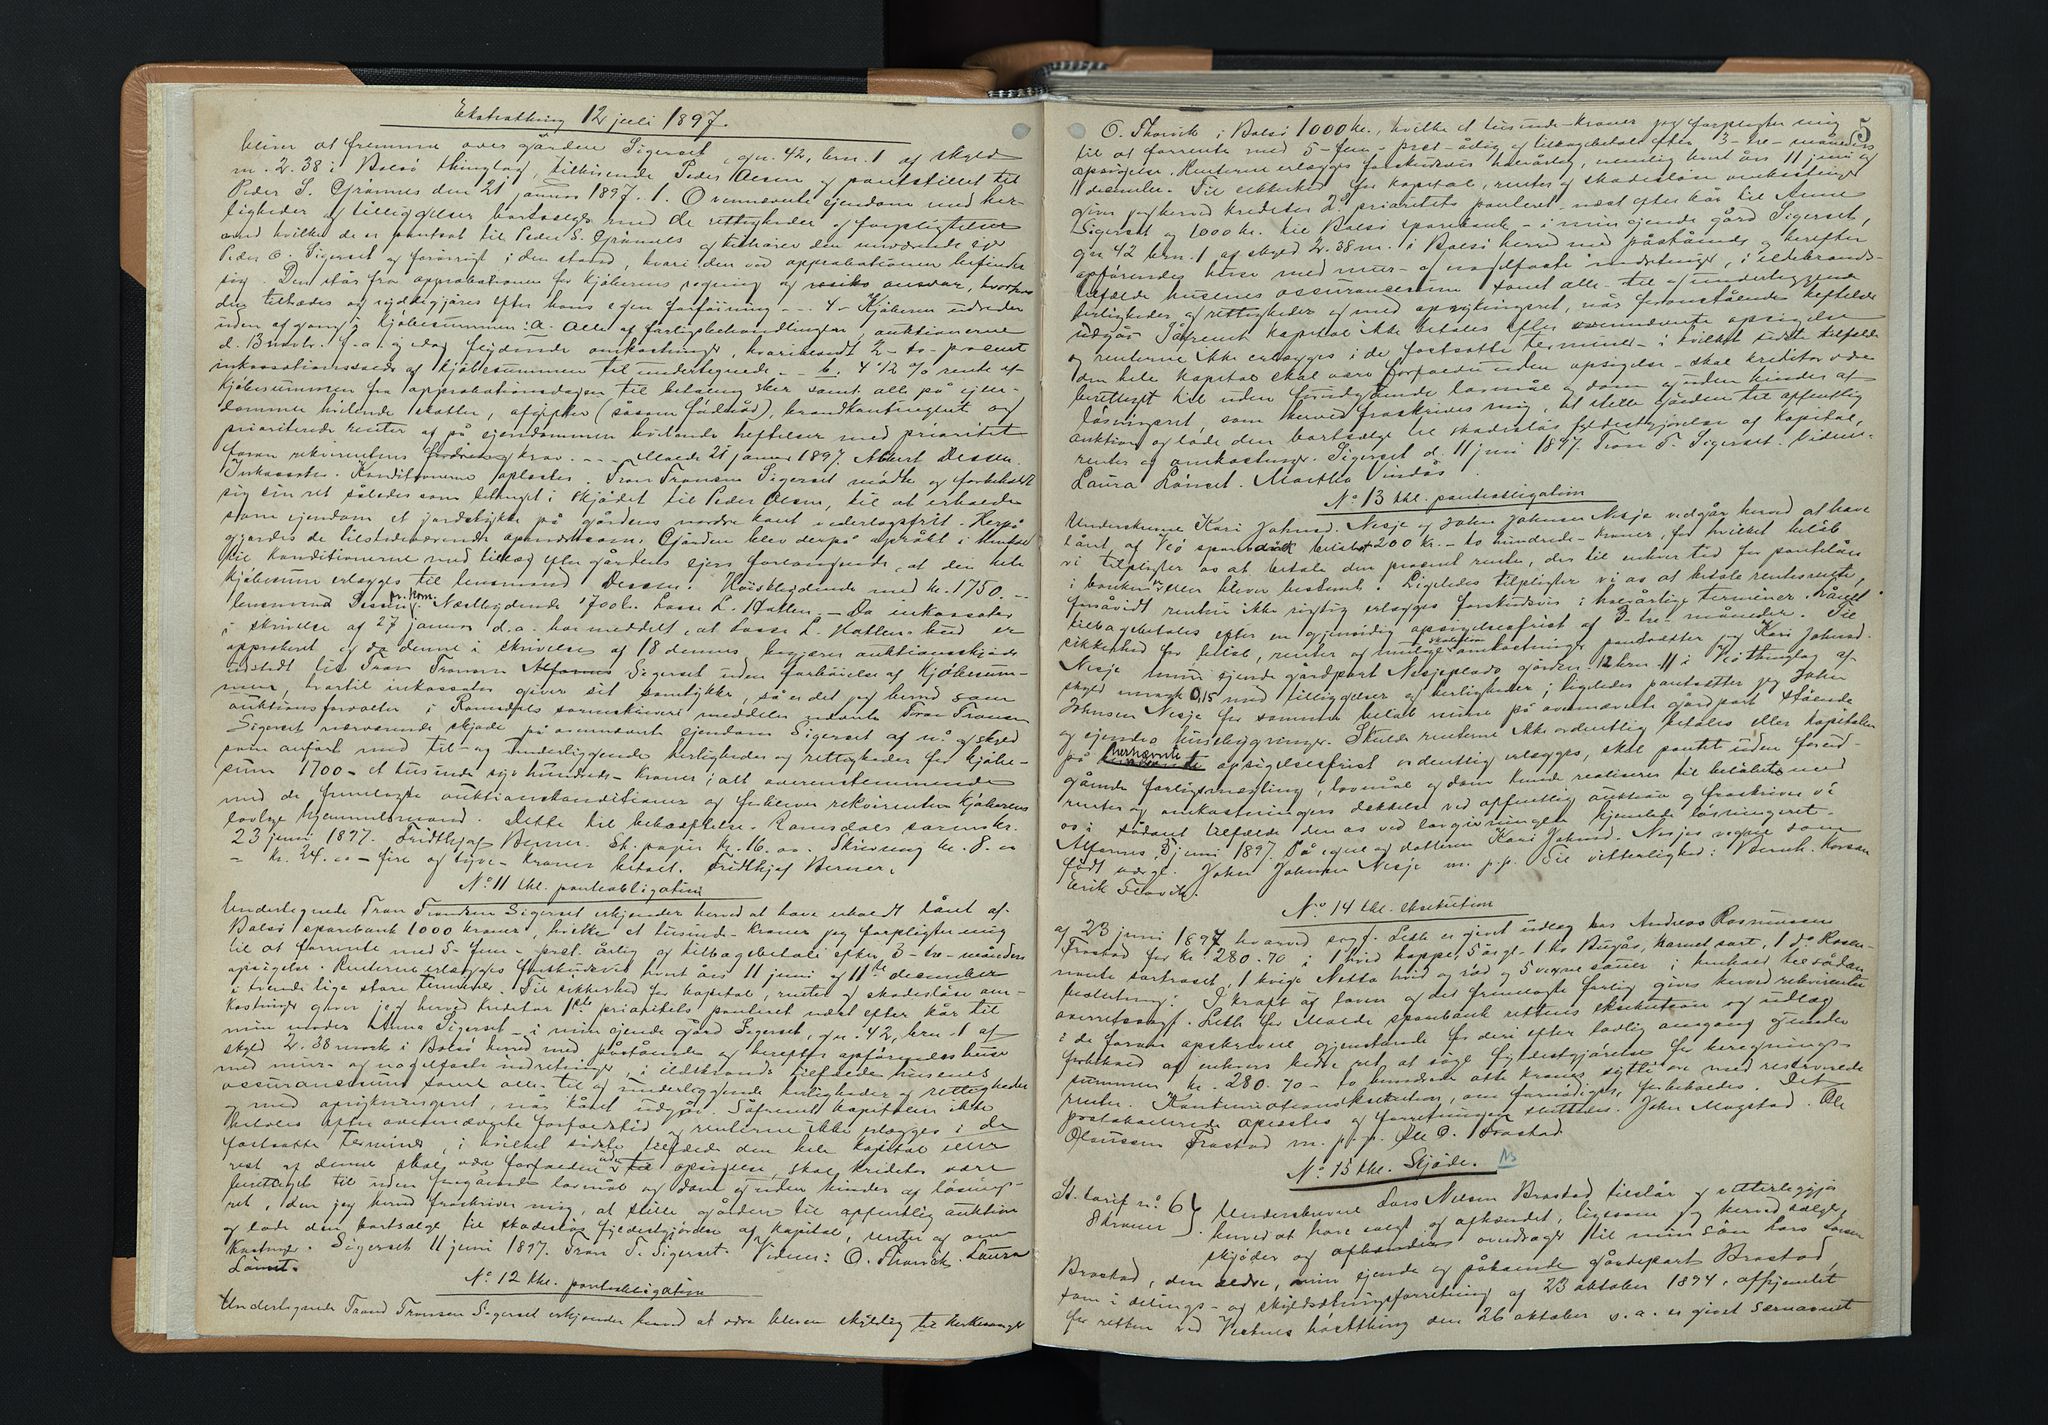 Ekstratthing 12 juli 1897.
bliver at fremme over gården Sigerset, gn. 42, brn. 1 af skyld
m. 2.38 i Bolsø thinglag, tilhørende Peder Olsen og pantstillet til
Peder S. Grønnes den 21 januar 1897. 1. Ovennævnte eiendom med her-
ligheder og tilliggelser bortsælges med de rettigheder og forpligtelser
med hvilke de er pantsat til Peder S. Grønnes og tilhører den nuværende eier
Peder O. Sigerset og forøvrigt i den stand, hvori den ved approbationen befinder
sig. Den står fra approbationen for kjøberens regning og risiko ansvar, hvorpaa
den tiltrædes og ryddiggjøres efter hans egen forføining - - 4 - Kjøberen udreder
uden afgang i kjøbesummen: a. Alle af forligsbehandlingen, auktionerne
d. 13 novbr. f.a. og idag flydende omkostninger, hvoriblandt 2 - to - procent
inkassationssalær af kjøbesummen til undertegnede - - b. 4 1/2 % rente af
kjøbesummen fra approbationsdagen til betaling sker samt alle på eien-
dommen hvilende skatter, afgifter (såsom føderåd), brandkontingent og
prioriterede renter af på eiendommen hvilende heftelser med prioritet
foran rekvirentens krav. - - - Molde 21 januar 1897. Albert Dessen.
Inkassator. Konditionerne oplæstes. Tron Tronsen Sigerset mødte og forbeholdt
sig sin ret således som betinget i skjødet til Peder Olsen, til at erholde
som eiendom et jordstykke på gårdens nordre kant vederlagsfrit. Herpå
gjordes de tilstedeværende opmærksom. Gården blev derpå opråbt i henhold
til konditionerne med tillæg efter gårdens eiers forlangende, at den hele
kjøbesum erlægges til lensmand Dessen. Høistbydende med kr. 1750. - -
lensmand Dessen pr. kom. Næstbydende 1700 kr. Lasse L. Hatlen. - Da inkassator
i skrivelse af 27 januar d.a. har meddelt, at Lasse L. Hatlens bud er
approberet og da denne i skrivelse af 18 dennes begjærer auktionsskjøde
udstedt til Tron Tronsen Sigerset uden forhøielse af kjøbesum-
men, hvortil inkassator giver sit samtykke, så er det jeg herved som
auktionsforvalter i Romsdals sorenskriveri meddeler nævnte Tron Tronsen
Sigerset nærværende skjøde på ovennævnte eiendom Sigerset af no. og skyld
som anført med til- og underliggende herligheder og rettigheder for kjøbe-
sum 1700 - et tusinde syv hundrede - kroner; alt overensstemmende
med de fremlagte auktionskonditioner og forbliver rekvirenten kjøberens
lovlige hjemmelsmand. Dette til bekræftelse. Romsdals sorenskr.
23 juni 1897. Fridthjof Berner. St. papir kr. 16.00. Skrivning kr. 8.00
= kr. 24.00 - fire og tyve - kroner betalt. Fridthjof Berner.
No. 11 thl. pantobligation
Undertegnede Tron Tronsen Sigerset erkjender herved at have erholdt tilånt af
Bolsø sparebank 1000 kroner, hvilke et tusinde - kroner jeg forpligter mig
til at forrente med 5 - fem - pct. årlig og tilbagebetale efter 3 - tre - måneders
opsigelse. Renterne erlægges forskudsvis hvert års 11 juni og 11te december
i tvende lige store terminer. Til sikkerhed for kapital, renter og skadesløse om-
kostninger giver jeg herved kreditor 1ste prioritets panteret næst efter kår til
min moder Anna Sigerset - i min eiende gård Sigerset, gn. 42, brn. 1 af
skyld 2.38 mark i Bolsø herred med påstående og herefter opførendes huse
med mur- og nagelfaste indretninger, i ildebrands tilfælde husenes
assurancesum samt alle til og underliggende herligheder og rettigheder
og med oprykningsret, når kåret udgår. Såfremt kapitalen ikke
betales efter ovennævnte forfaldstid og renterne ikke erlægges i de
fortsatte terminer, i hvilket sidste tilfælde den hele kapital eller
rest af denne skal være forfalden uden opsigelse, skal kreditor være
berettiget til uden foregående lovmål og dom og uden hinder af løsnings-
ret, den jeg herved fraskriver mig, at stille gården til offentlig auktion
og lade den bortsælge til skadesløs fyldestgjørelse af kapital, renter og om-
kostninger. Sigerset 11 juni 1897. Tron T. Sigerset. Vidner: O. Thorvik. Laura
Lønset.
No. 12 thl. pantobligation
Undertegnede Trond Tronsen Sigerset erkjender herved at være bleven skyldig til kirkesanger
5
O. Thorvik i Bolsø 1000 kr., hvilke et tusinde - kroner jeg forpligter mig
til at forrente med 5 - fem - pct. årlig og tilbagebetale efter 3 - tre - måneders
opsigelse. Renterne erlægges forskudsvis halvårlig, nemlig hvert års 11 juni og
11 december. Til sikkerhed for kapital, renter og skadesløse omkostninger
giver jeg herved kreditor 2. prioritets panteret næst efter kår til Anne
Sigerset og 1000 kr. til Bolsø sparebank - i min eiende gård Sigerset,
gn. 42 brn. 1 af skyld 2.38 m. i Bolsø herred med påstående og herefter
opførendes huse med mur- og nagelfaste indretninger, i ildebrands-
tilfælde husenes assurancesum samt alle til og underliggende
herligheder og rettigheder og med oprykningsret, når foranstående heftelser
udgår. Såfremt kapital ikke betales efter ovennævnte opsigelse
og renterne ikke erlægges i de fortsatte terminer - i hvilket sidste tilfælde
den hele kapital skal være forfalden uden opsigelse - skal kreditor være
berettiget til uden foregående lovmål og dom og uden hinder af
løsningsret, som herved fraskrives mig, at stille gården til offentlig
auktion og lade den bortsælge til skadesløs fyldestgjørelse af kapital,
renter og omkostninger. Sigerset d. 11 juni 1897. Tron T. Sigerset. Vidner:
Laura Lønset. Martha Vindås.
No. 13 thl. pantobligation
Underskrevne Kari Johnsd. Nesje og John Johnsen Nesje vedgår herved at have
lånt af Veø sparebank beløbet 200 kr. - to hundrede - kroner, for hvilket beløb
vi tilpligter os at betale den procent rente, der til enhver tid for pantelån
i banken bliver bestemt. Ligeledes tilpligter vi os at betale rentesrente,
forsåvidt renten ikke rigtig erlægges forskudsvis i halvårlige terminer. Lånet
tilbagebetales efter en gjensidig opsigelsesfrist af 3 - tre - måneder. Til
sikkerhed for beløb, renter og mulige skadesløse omkostninger pantsætter jeg Kari Johnsd.
Nesje min eiende gårdpart Nesjeplads gårdsn. 12 brn. 11 i Veø thinglag af
skyld mark 0,15 med tilliggelser og herligheder, ligeledes pantsætter jeg John
Johnsen Nesje for samme beløb mine på ovennævnte gårdpart stående
og eiende husebygninger. Skulde renterne ikke ordentlig betales eller kapitalen
på bemeldte nævnte opsigelsesfrist ordentlig erlægges, skal pantet uden forud-
gående forligsmægling, lovmål og dom kunde realiseres til beløbets med
renter og omkostningers dækkelse ved offentlig auktion og fraskriver vi
os i sådant tilfælde den os ved lovgivningen hjemlede løsningsret.
Alfarnes, 5 juni 1897. På egne og datteren Kari Johnsd. Nesjes vegne som
født værge. John Johnsen Nesje m. p. p. Til vitterlighed: Bernh. Korsan
Erik Flovik.
No. 14 thl. eksekution
af 23 juni 1897 hvorved sogf. Leth er givet udlæg hos Andreas Rasmussen
Frostad for kr. 280.70 i 1 hvid hoppe, 5 årgl. 1 ko Bugås, hornet sort, 1 do Rosen-
monte sortraset, 1 kvige Netta hvid og rød og 5 voxne sauer i henhold til sådan
beslutning: I kraft af loven og det fremlagte forlig gives herved rekvirenten
overretssagf. Leth for Molde sparebank rettens eksekution og udlæg
i de foran opskrevne gjenstande for deri efter lovlig omgang og under
forbehold af enhvers bedre ret at søge fyldestgjørelse for beregnings-
summen kr. 280.70 - to hundrede otte kroner sytti øre med reserverede
renter. Kontinuationseksekution, om fornødiges, forbeholdes. Det
protokollerede oplæstes og forretningen sluttedes. John Magstad. Ole
Olaussen Frostad m. p. p. Ole O. Frostad
No. 15 thl. Skjøde. N3
St. tarif no. 6
8 kroner } Underskrevne Lars Nilsen Brastad tilstår og vitterliggjør
herved at have solgt og afhændet, ligesom jeg herved sælger,
skjøder og afhænder, overdrager til min søn Lars Larsen
Brastad, den ældre, min eiende og påboende gårdepart Brastad,
som i delings- og skyldsætningsforretning af 23 oktober 1894, afhjemlet
for retten ved Vestnes høstthing den 26 oktober s.a. er givet særnavnet